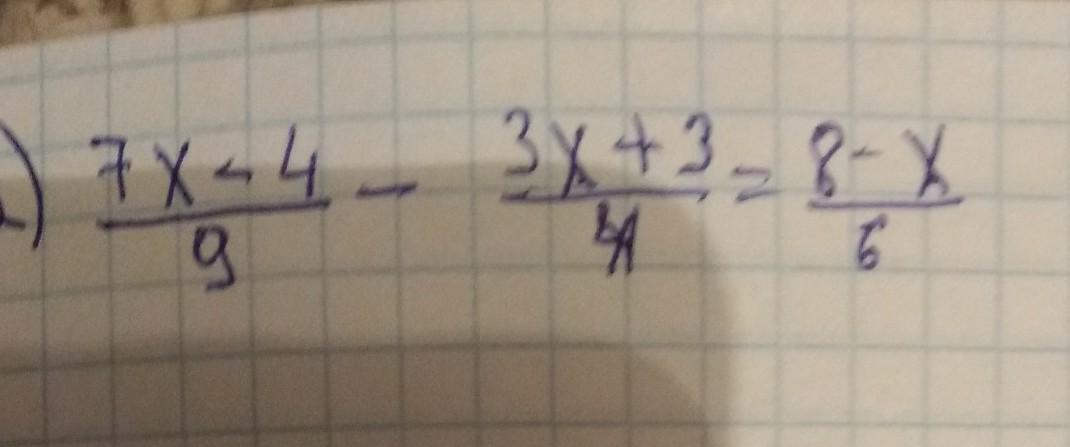 ) (7x - 4)/9 - (3x + 3)/4 = (8 - x)/6